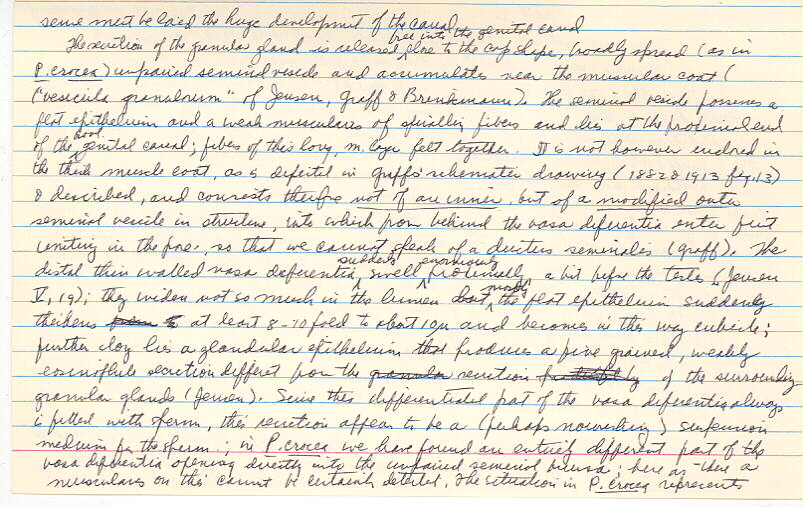 sense must be laid the huge development of the canal
free into the genital canal
The secretion of the granular gland is released, close to the cap shape, broadly spread (as in
P. crocea) unpaired seminal vesicle and accumulates near the muscular coat (
("vesicula granulorum" of Jensen, Graff & Brenkmann). The seminal vesicle possesses a
flat epithelium and a weak muscularis of spirally fibers and lies at the proximal end
of the genital canal; fibers of this long, m. layer felt together. It is not however enclosed in
the thick muscle coat, as is depicted in Graff's schematic drawing (1882 & 1913 fig. 13)
& described, and consists therefore not of an inner, but of a modified outer
seminal vesicle in structure, into which from behind the vasa deferentia enter first
uniting in the pore, so that we cannot speak of a ductus seminalis (Graff). The
sudden enormously
distal thin walled vasa deferentia, swell proximally, a bit before the testes (Jensen
V, 19); they widen not so much in the lumen but mostly the flat epithelium suddenly
thickens at least 8-10 fold to about 10µ and becomes in this way cubicle;
further along lies a glandular epithelium that produces a fine grained, weakly
eosinophile secretion different from the granular secretion of the surrounding
granular glands (Jensen). Since this differentiated part of the vasa deferentia always
is filled with sperm, this secretion appears to be a (perhaps nourishing) suspension
medium for the sperm.; in P. crocea we have found an entirely different part of the
vasa deferentia opening directly into the unpaired seminal bursa; here as there a
muscularis on this cannot be certainly detected. The situation in P. crocea represents